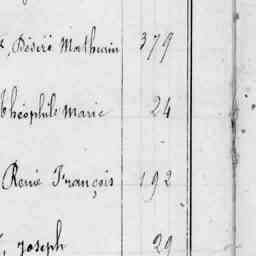 , Désiré Mathurin 379
Théophile Marie 24
René François 192
, Joseph 29